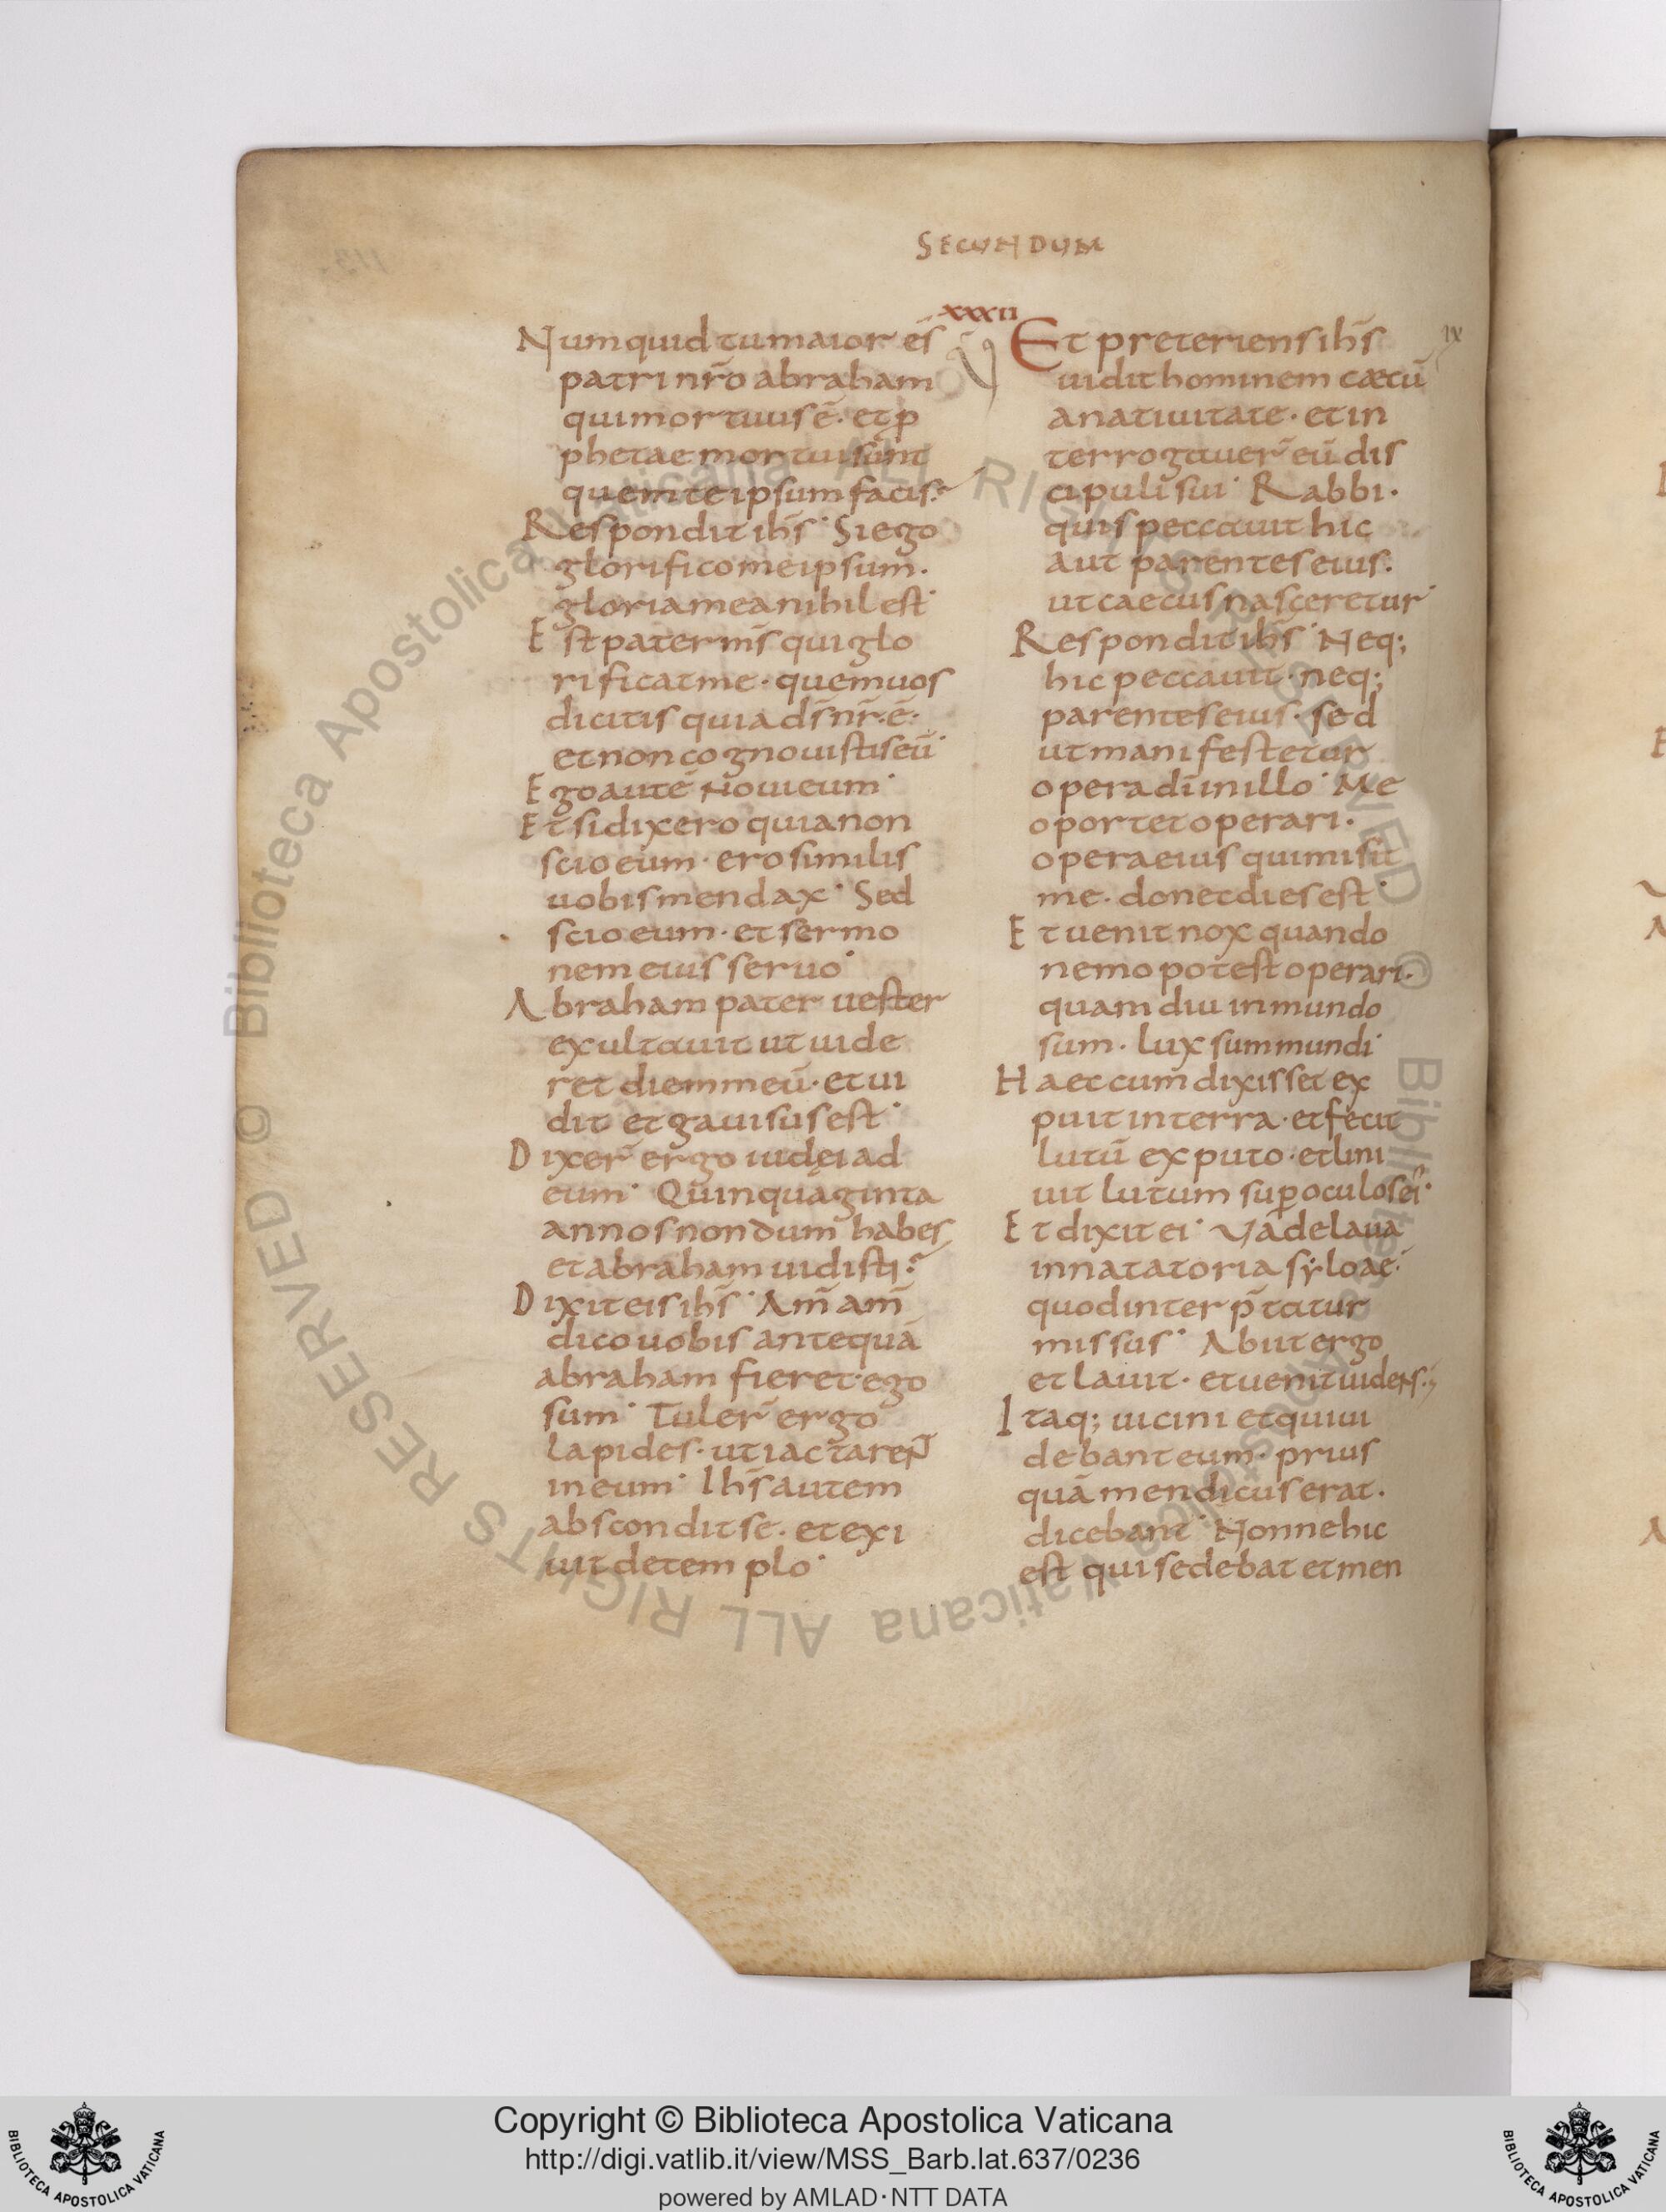 SECUNDUM
Numquid tu maior es̄
patri nr̄o abraham
qui mortuus ē· et ꝓ
phetae mortui sunt
quem te ipsum facis?
Respondit ihs̄· Si ego
glorifico me ipsum·
gloria mea nihil est·
Est pater ms̄ qui glo
rificat me· quem uos
dicitis quia ds̄ nr̄ ē·
et non cognouistis eū·
Ego autē noui eum·
Et si dixero quia non
scio eum· ero similis
uobis mendax· Sed
scio eum· et sermo
nem eius seruo·
Abraham pater uester
exultauit ut uide
ret diem meū· et ui
dit et gauisus est·
Dixer̄ ergo iudęi ad
eum· Quinquaginta
annos nondum habes
et abraham uidisti?
Dixit eis ihs̄· Am̄ am̄
dico uobis antequā
abraham fieret ego
sum· Tuler̄ ergo
lapides· ut iactarent
in eum· Ihs̄ autem
abscondit se· et exi
uit de templo·
XXXII
Et preteriens ihs̄
IX
uidit hominem cæcū
a natiuitate· et in
terrogauer̄ eū dis
cipuli sui· Rabbi·
quis peccauit hic
aut parentes eius·
ut caecus nasceretur·
Respondit ihs̄· Neq;
hic peccauit· neq;
parentes eius· sed
ut manifestetur
opera dī in illo· Me
oportet operari·
opera eius qui misit
me· donec dies est·
Et uenit nox quando
nemo potest operari·
quam diu in mundo
sum· lux sum mundi·
Haec cum dixisset ex
puit in terra· et fecit
lutū ex puto· et lini
uit lutum suꝑ oculos ei᾽·
Et dixit ei· Vade laua
in natatoria syloae·
quod interp̄tatur
missus· Abiit ergo
et lauit· et uenit uidens·;
Itaq; uicini et qui ui
debant eum· prius
quā mendicus erat·
dicebant· Nonne hic
est qui sedebat et men
Copyright © Biblioteca Apostolica Vaticana
http://digi.vatlib.it/view/MSS_Barb.lat.637/0236
powered by AMLAD·NTT DATA
BIBLIOTECA APOSTOLICA VATICANA
BIBLIOTECA APOSTOLICA VATICANA
© Biblioteca Apostolica Vaticana ALL RIGHTS RESERVED © Biblioteca Apostolica Vaticana ALL RIGHTS RESERVED